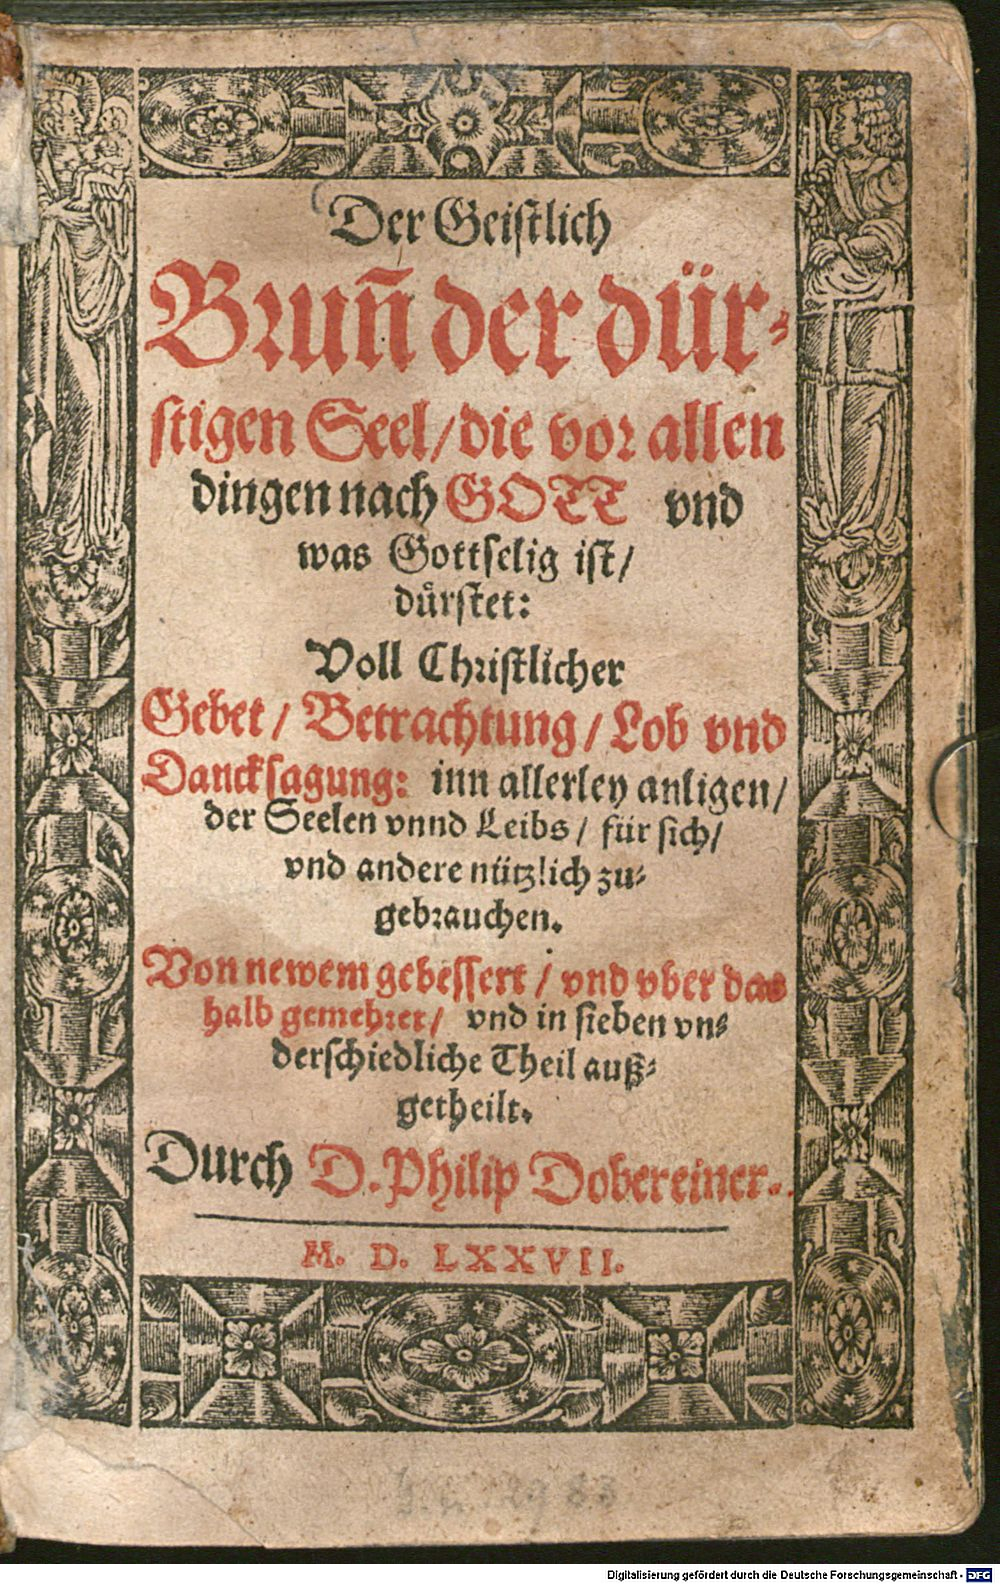 Der Geistlich
Bruñ der dür-
stigen Seel/ die vor allen
dingen nach GOTT vnd
was Gottselig ist/
dürstet:
Voll Christlicher
Gebet/ Betrachtung/ Lob vnd
Dancksagung: inn allerley anligen/
der Seelen vnnd Leibs/ für sich/
vnd andere nützlich zu-
gebrauchen.
Von newem gebessert/ vnd vber das
halb gemehret/ vnd in sieben vn-
derschiedliche Theil auß-
getheilt.
Durch D. Philip Dobereiner.
M. D. LXXVII.
Digitalisierung gefördert durch die Deutsche Forschungsgemeinschaft - DFG